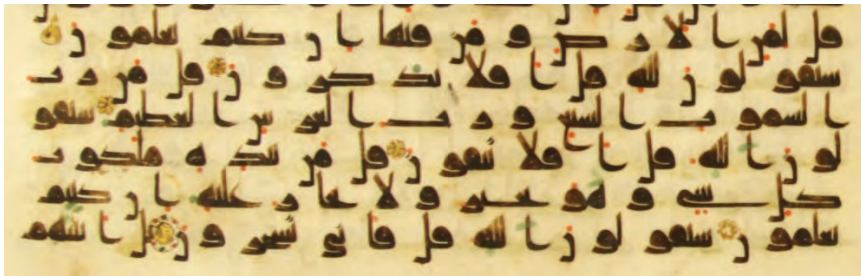 قل لمن الارض و من فيها ان كنتم تعلمون
سيقولون لله قل افلا تذكرون قل من رب
السموت السبع و رب العرش العظيم سيقو
لون الله قل افلا تتقون قل من بيده ملكوت
كل شي و هو يجير و لا يجار عليه ان كنتم
تعلمون سيقولون الله قل فانى تسحرون بل اتينهم